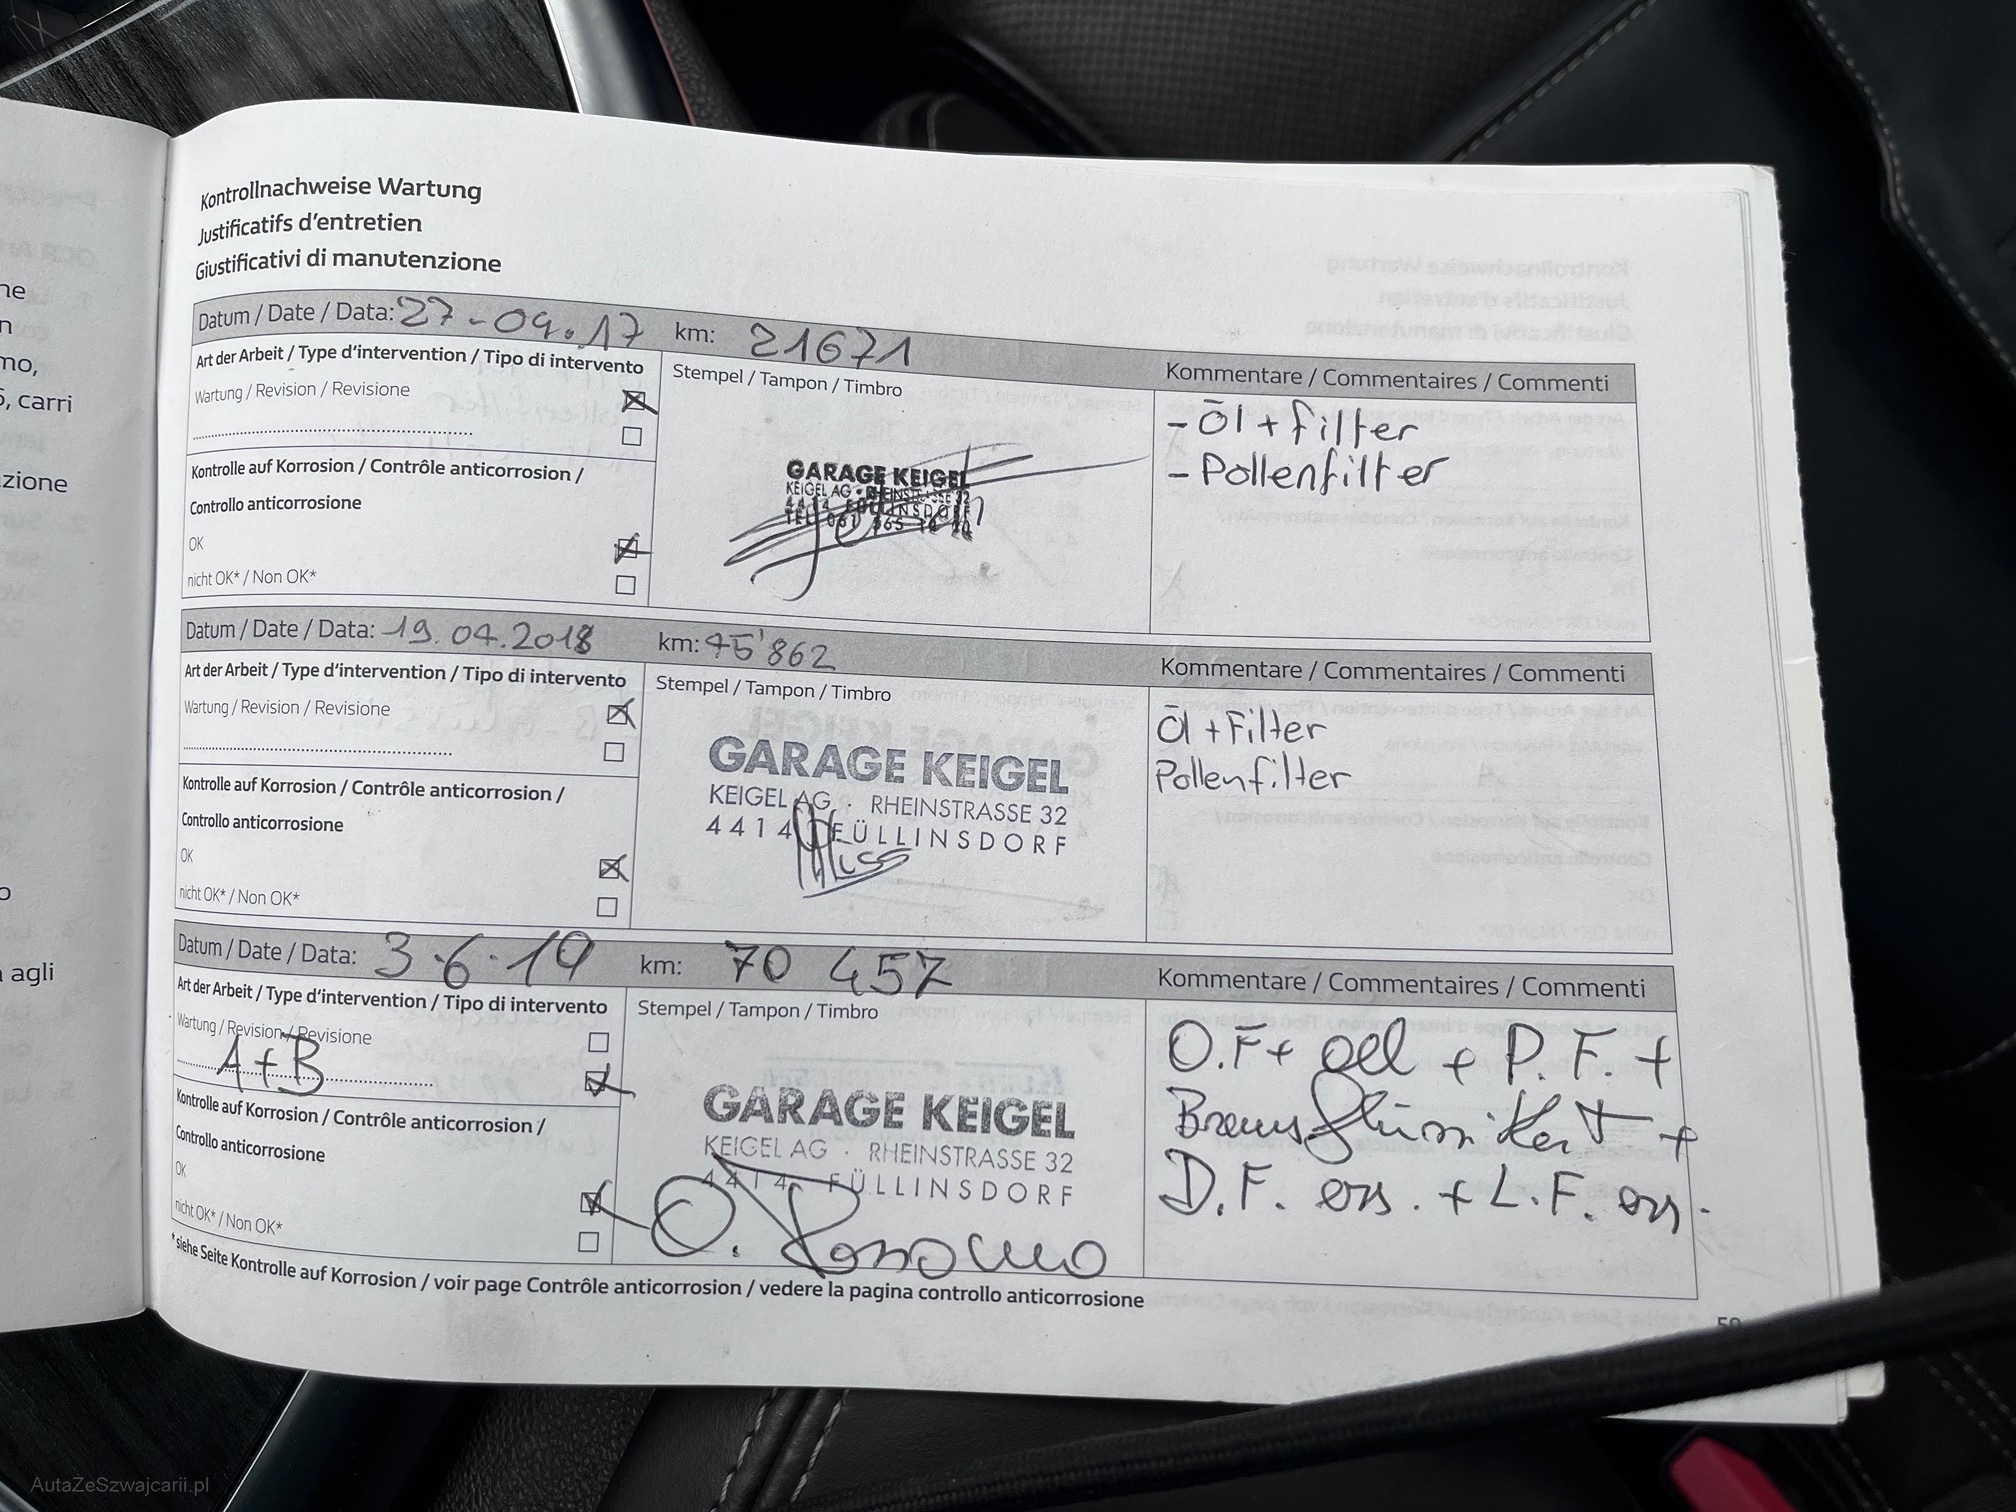 ne
n
mo,
5, carri
zione
o
agli
Kontrollnachweise Wartung
Justificatifs d'entretien
Giustificativi di manutenzione
Datum / Date / Data: 27-04.17 km: 21671
Art der Arbeit / Type d'intervention / Tipo di intervento
Stempel / Tampon / Timbro
Kommentare / Commentaires / Commenti
Wartung / Revision / Revisione
Kontrolle auf Korrosion / Contrôle anticorrosion /
Controllo anticorrosione
OK
nicht OK* / Non OK*
GARAGE KEIGEL
KEIGEL AG · RHEINSTRASSE 32
4414 FÜLLINSDORF
TEL 061
- Öl + Filter
- Pollenfilter
Datum / Date / Data: 19.04.2018 km: 45'862
Art der Arbeit / Type d'intervention / Tipo di intervento
Stempel / Tampon / Timbro
Kommentare / Commentaires / Commenti
Wartung / Revision / Revisione
Kontrolle auf Korrosion / Contrôle anticorrosion /
Controllo anticorrosione
OK
nicht OK* / Non OK*
GARAGE KEIGEL
KEIGEL AG · RHEINSTRASSE 32
4414 FÜLLINSDORF
Öl + Filter
Pollenfilter
Datum / Date / Data: 3.6.19 km: 70 457
Art der Arbeit / Type d'intervention / Tipo di intervento
Stempel / Tampon / Timbro
Kommentare / Commentaires / Commenti
Wartung / Revision / Revisione
A+B
Kontrolle auf Korrosion / Contrôle anticorrosion /
Controllo anticorrosione
OK
nicht OK* / Non OK*
GARAGE KEIGEL
KEIGEL AG · RHEINSTRASSE 32
4414 FÜLLINSDORF
O.F + oel + P.F. +
D.F. ers. + L.F. ers.
*siehe Seite Kontrolle auf Korrosion / voir page Contrôle anticorrosion / vedere la pagina controllo anticorrosione
AutaZeSzwajcarii.pl